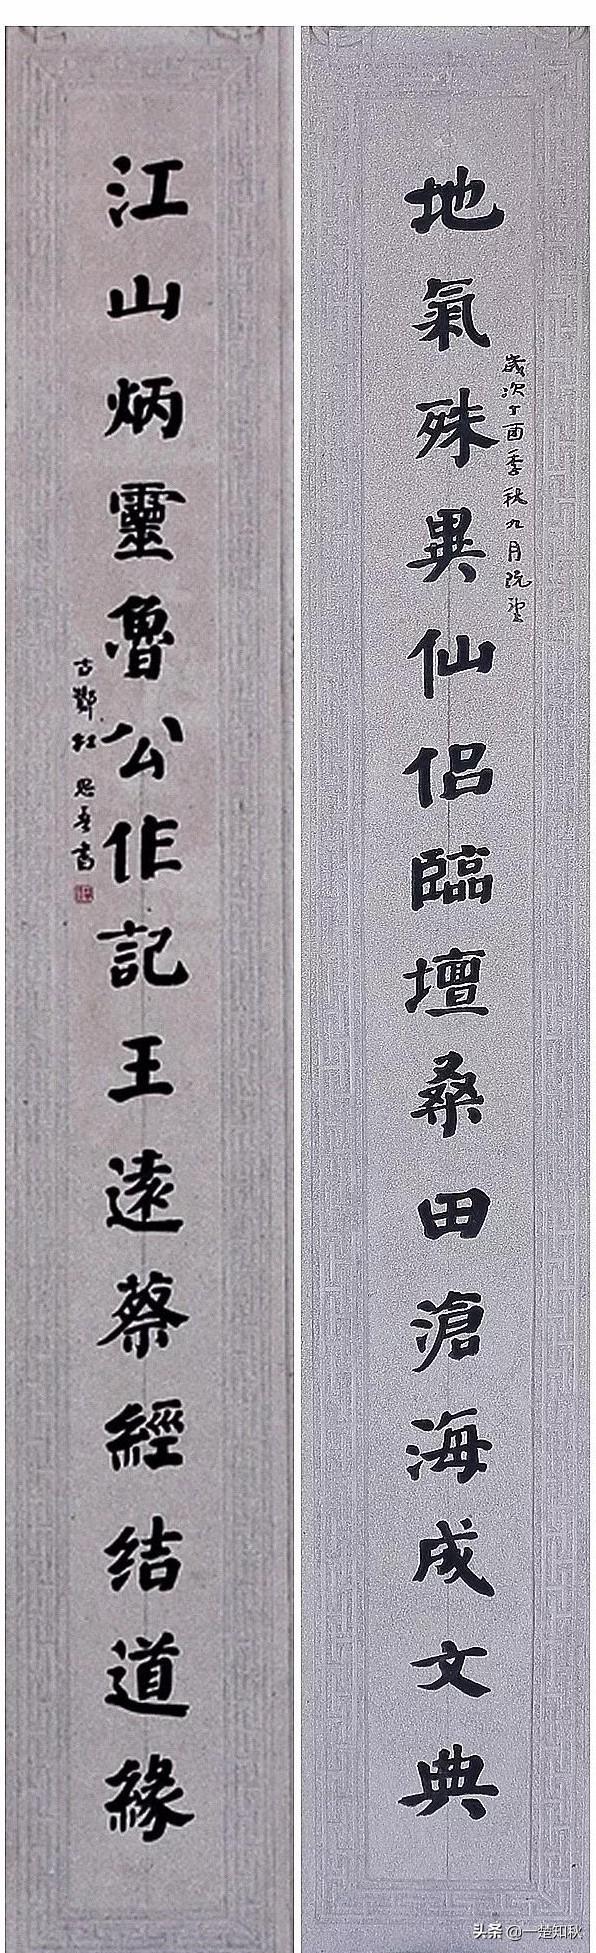 歲次丁酉季秋九月
地氣殊異仙侶臨壇桑田滄海成文典
江山炳靈魯公作記王遠蔡經结道緣
古
書
头条 @一楚知秋